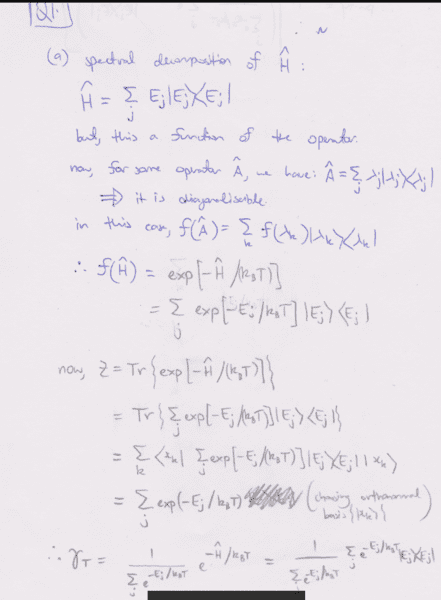 Q1.
(a) spectral decomposition of Ĥ:
Ĥ = ∑_j E_j|E_j⟩⟨E_j|
but, this a function of the operator.
now, for some operator Â, we have: Â = ∑_j λ_j|λ_j⟩⟨λ_j|
⇒ it is diagonalisable
in this case, f(Â) = ∑_k f(λ_k)|λ_k⟩⟨λ_k|
∴ f(Ĥ) = exp[-Ĥ/(k_BT)]
= ∑_j exp[-E_j/k_BT] |E_j⟩⟨E_j|
now, Z = Tr{exp[-Ĥ/(k_BT)]}
= Tr{∑_j exp[-E_j/(k_BT)]|E_j⟩⟨E_j|}
= ∑_k ⟨x_k| ∑_j exp[-E_j/(k_BT)]|E_j⟩⟨E_j||x_k⟩
= ∑_j exp(-E_j/k_BT) (choosing orthonormal basis {|x_k⟩})
∴ γ_T = 1/(∑_j e^{-E_j/k_BT}) e^{-Ĥ/k_BT} = 1/(∑_j e^{-E_j/k_BT}) ∑_j e^{-E_j/k_BT}|E_j⟩⟨E_j|